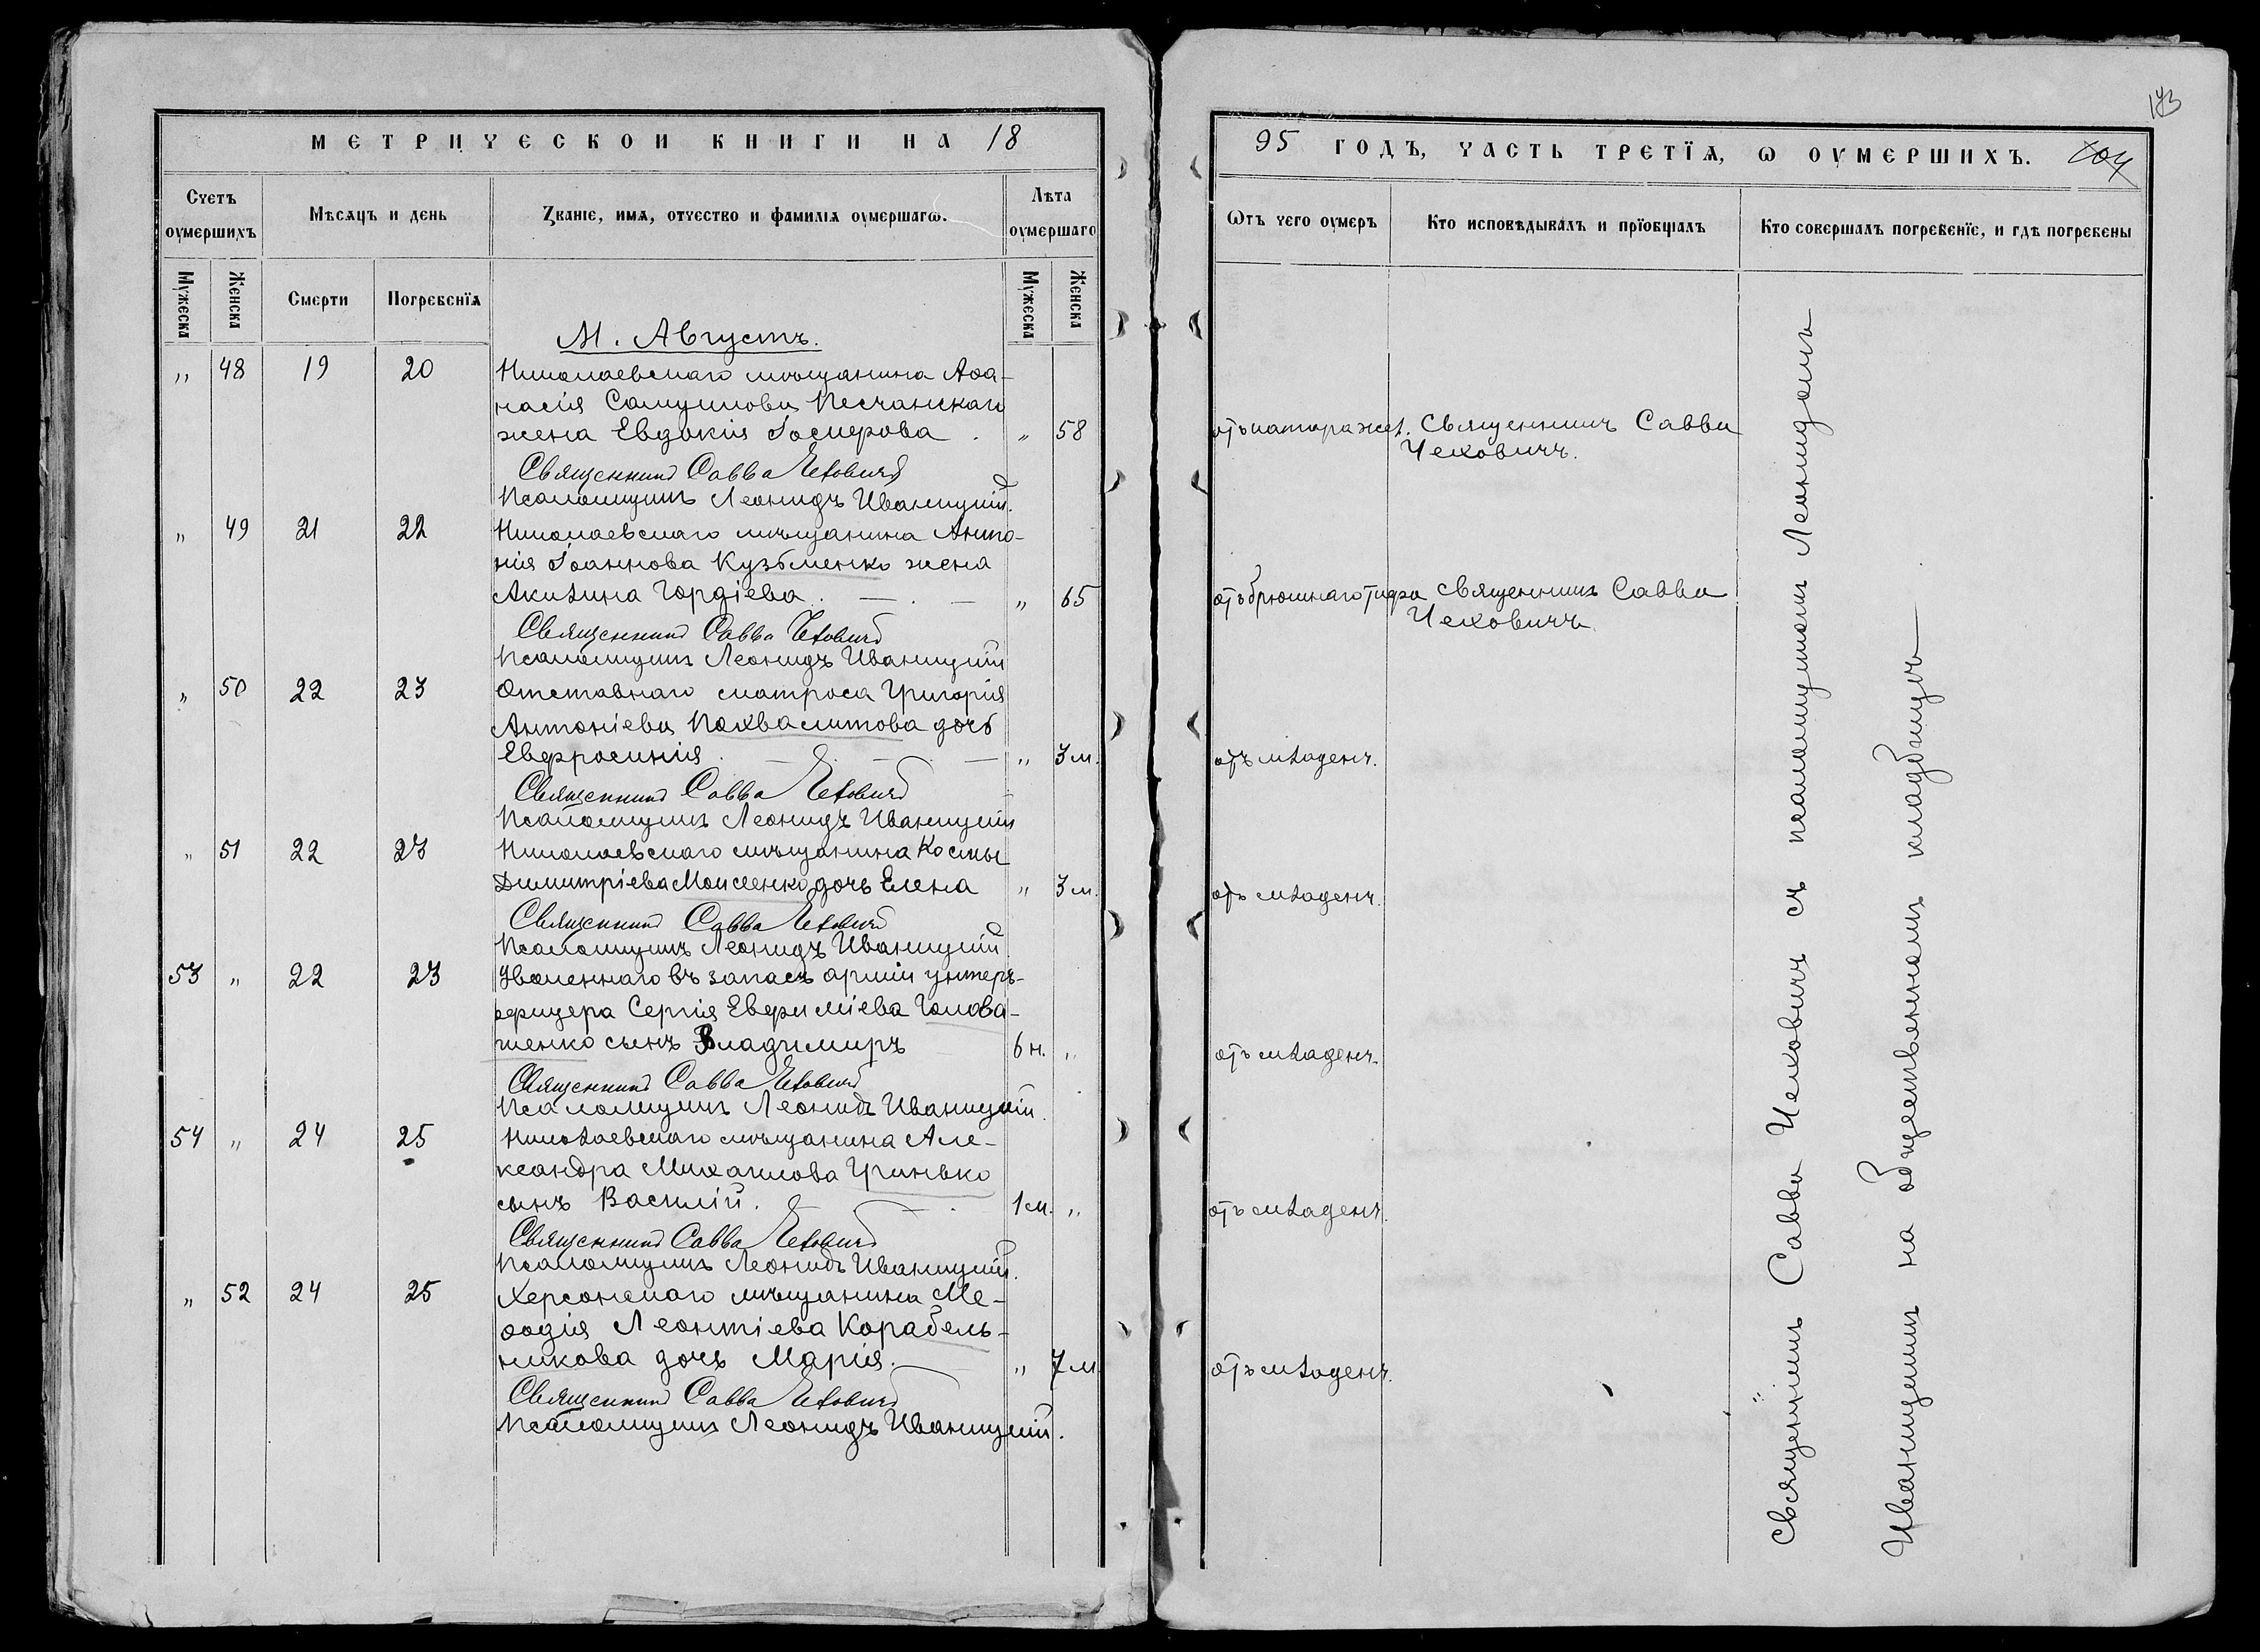 МЕТРИЧЕСКОИ КНИГИ НА 18
Счетъ оумершихъ
Мѣсяцъ и день
Званіе, имя, отчество и фамиліа оумершагѡ.
Лѣта оумершаго
Мужеска
Женска
Смерти
Погребенїя
Мужеска
Женска
М. Августъ.
„ 48 19 20 Николаевскаго мѣщанина Аѳа-
насія Самуилова Песчанскаго
жена Евдокія Іосифова . „ 58
Священникъ Савва Чеховичъ
Псаломщикъ Леонидъ Иваницкій.
„ 49 21 22 Николаевскаго мѣщанина Анто-
нія Іоаннова Кузьменко жена
Акилина Гордіева . — . — „ 65
Священникъ Савва Чеховичъ
Псаломщикъ Леонидъ Иваницкій
„ 50 22 23 Отставнаго матроса Григорія
Антоніева Похвалитова дочь
Евфросинія . — . — . — „ 3 м.
Священникъ Савва Чеховичъ
Псаломщикъ Леонидъ Иваницкій
„ 51 22 23 Николаевскаго мѣщанина Космы
Димитріева Моисеенко дочь Елена „ 3 м.
Священникъ Савва Чеховичъ
Псаломщикъ Леонидъ Иваницкій
53 „ 22 23 Уволеннаго въ запасъ арміи унтеръ-
офицера Сергія Евфиміева Голова-
шенко сынъ Владимиръ 6 н. „
Священникъ Савва Чеховичъ
Псаломщикъ Леонидъ Иваницкій.
54 „ 24 25 Николаевскаго мѣщанина Але-
ксандра Михаилова Гринько
сынъ Василій. — . 1 м. „
Священникъ Савва Чеховичъ
Псаломщикъ Леонидъ Иваницкій.
„ 52 24 25 Херсонскаго мѣщанина Ме-
ѳодія Леонтіева Корабель-
никова дочь Марія. — „ 7 м.
Священникъ Савва Чеховичъ
Псаломщикъ Леонидъ Иваницкій.
173
95 ГОДЪ, ЧАСТЬ ТРЕТЇЯ, Ѡ ОУМЕРШИХЪ. 104
Ѡтъ чего оумеръ
Кто исповѣдывалъ и прїобщалъ
Кто совершалъ погребенїе, и гдѣ погребены
Священникъ Савва
Чеховичъ.
отъ брюшнаго тифа Священникъ Савва
Чеховичъ
отъ младенч.
отъ младенч.
отъ младенч.
отъ младенч.
отъ младенч.
Священникъ Савва Чеховичъ съ псаломщикомъ Леонидомъ
Иваницкимъ на общественномъ кладбищѣ